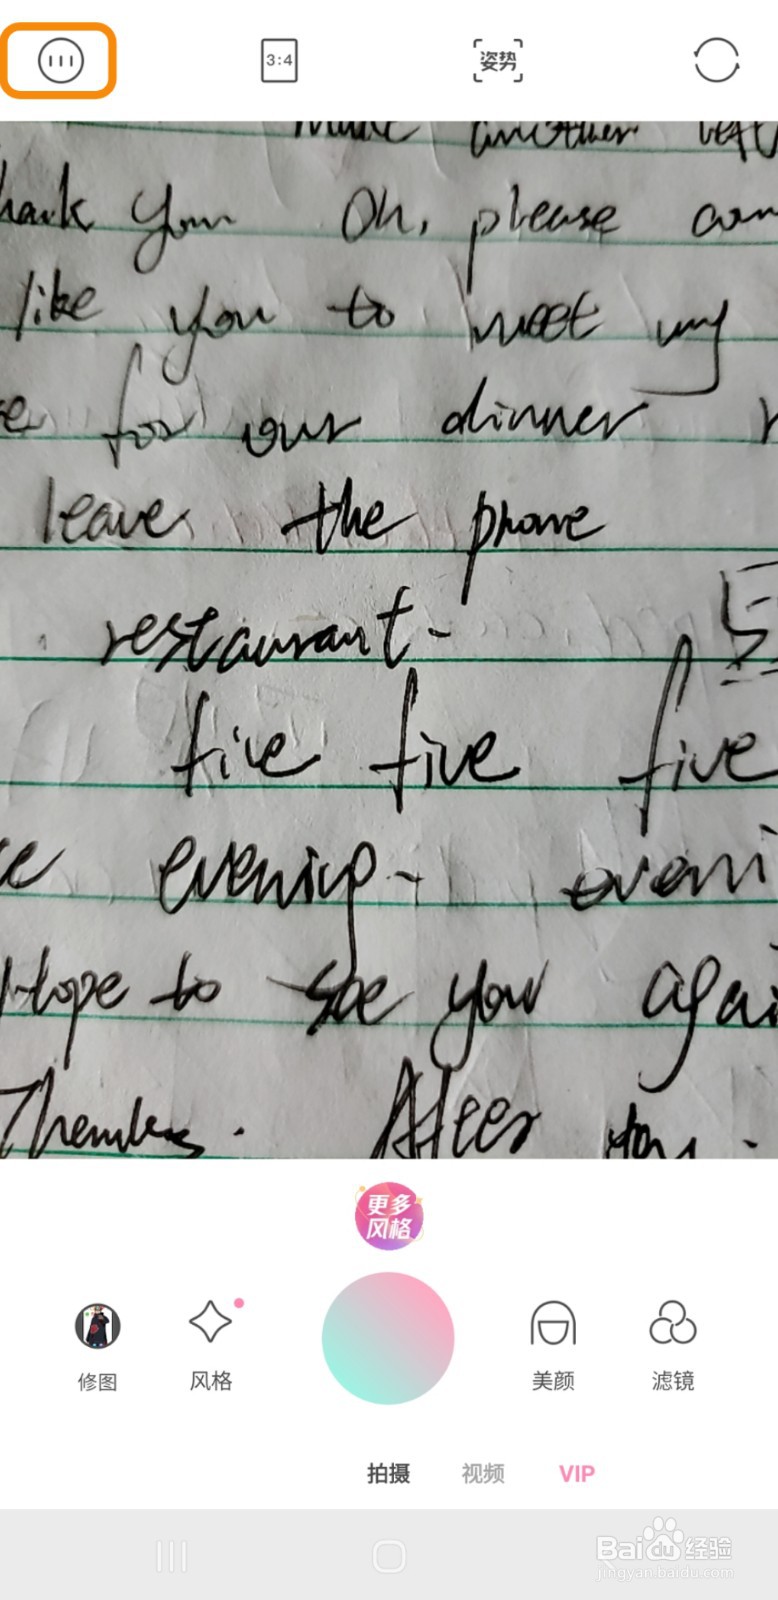 3:4
姿势
make another
hank you Oh, please com
like you to meet my
e for our dinner
leave the phone
restaurant-
five five five
ce evening- eveni
Hope to see you agai
Thanks. After you.
更多
风格
修图
风格
美颜
滤镜
拍摄
视频
VIP
Baidu经验
jingyan.baidu.com